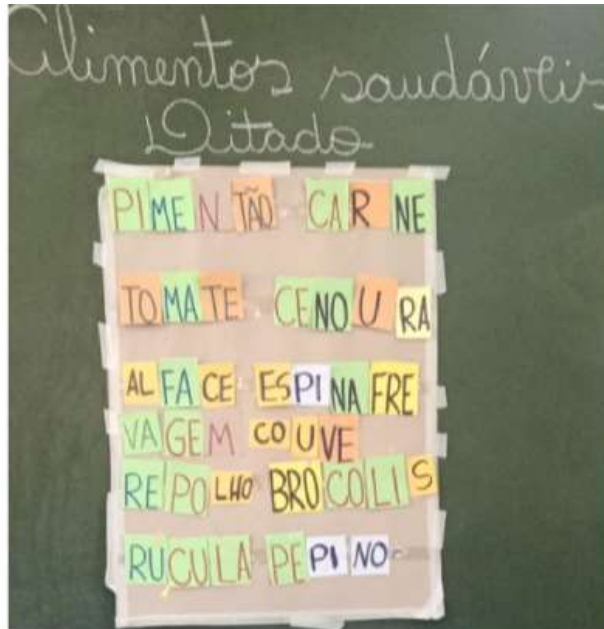 Alimentos saudáveis
Ditado
PIMENTÃO CARNE
TOMATE CENOURA
ALFACE ESPINAFRE
VAGEM COUVE
REPOLHO BROCOLIS
RUCULA PEPINO